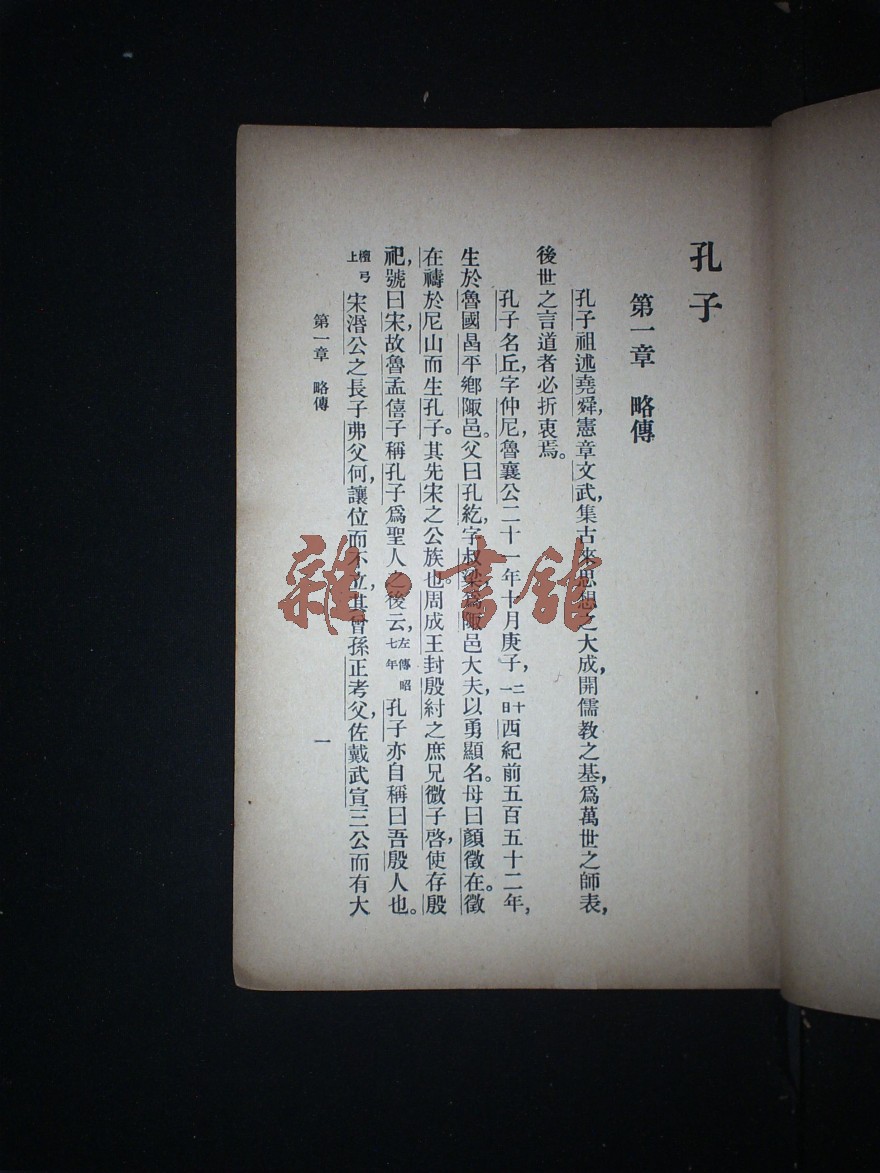 孔子
第一章　略傳
孔子祖述堯舜，憲章文武，集古來思想之大成，開儒教之基，爲萬世之師表，
後世之言道者必折衷焉。
孔子名丘，字仲尼，魯襄公二十一年十月庚子，二十一日西紀前五百五十二年，
生於魯國昌平鄉陬邑。父曰孔紇，字叔梁，爲陬邑大夫，以勇顯名。母曰顏徵在。徵
在禱於尼山而生孔子。其先宋之公族也。周成王封殷紂之庶兄微子啓，使存殷
祀，號曰宋，故魯孟僖子稱孔子爲聖人之後云，左傳昭七年孔子亦自稱曰吾殷人也。
檀弓上宋湣公之長子弗父何，讓位而不立，其曾孫正考父，佐戴武宣三公而有大
第一章　略傳
一
雜·書館